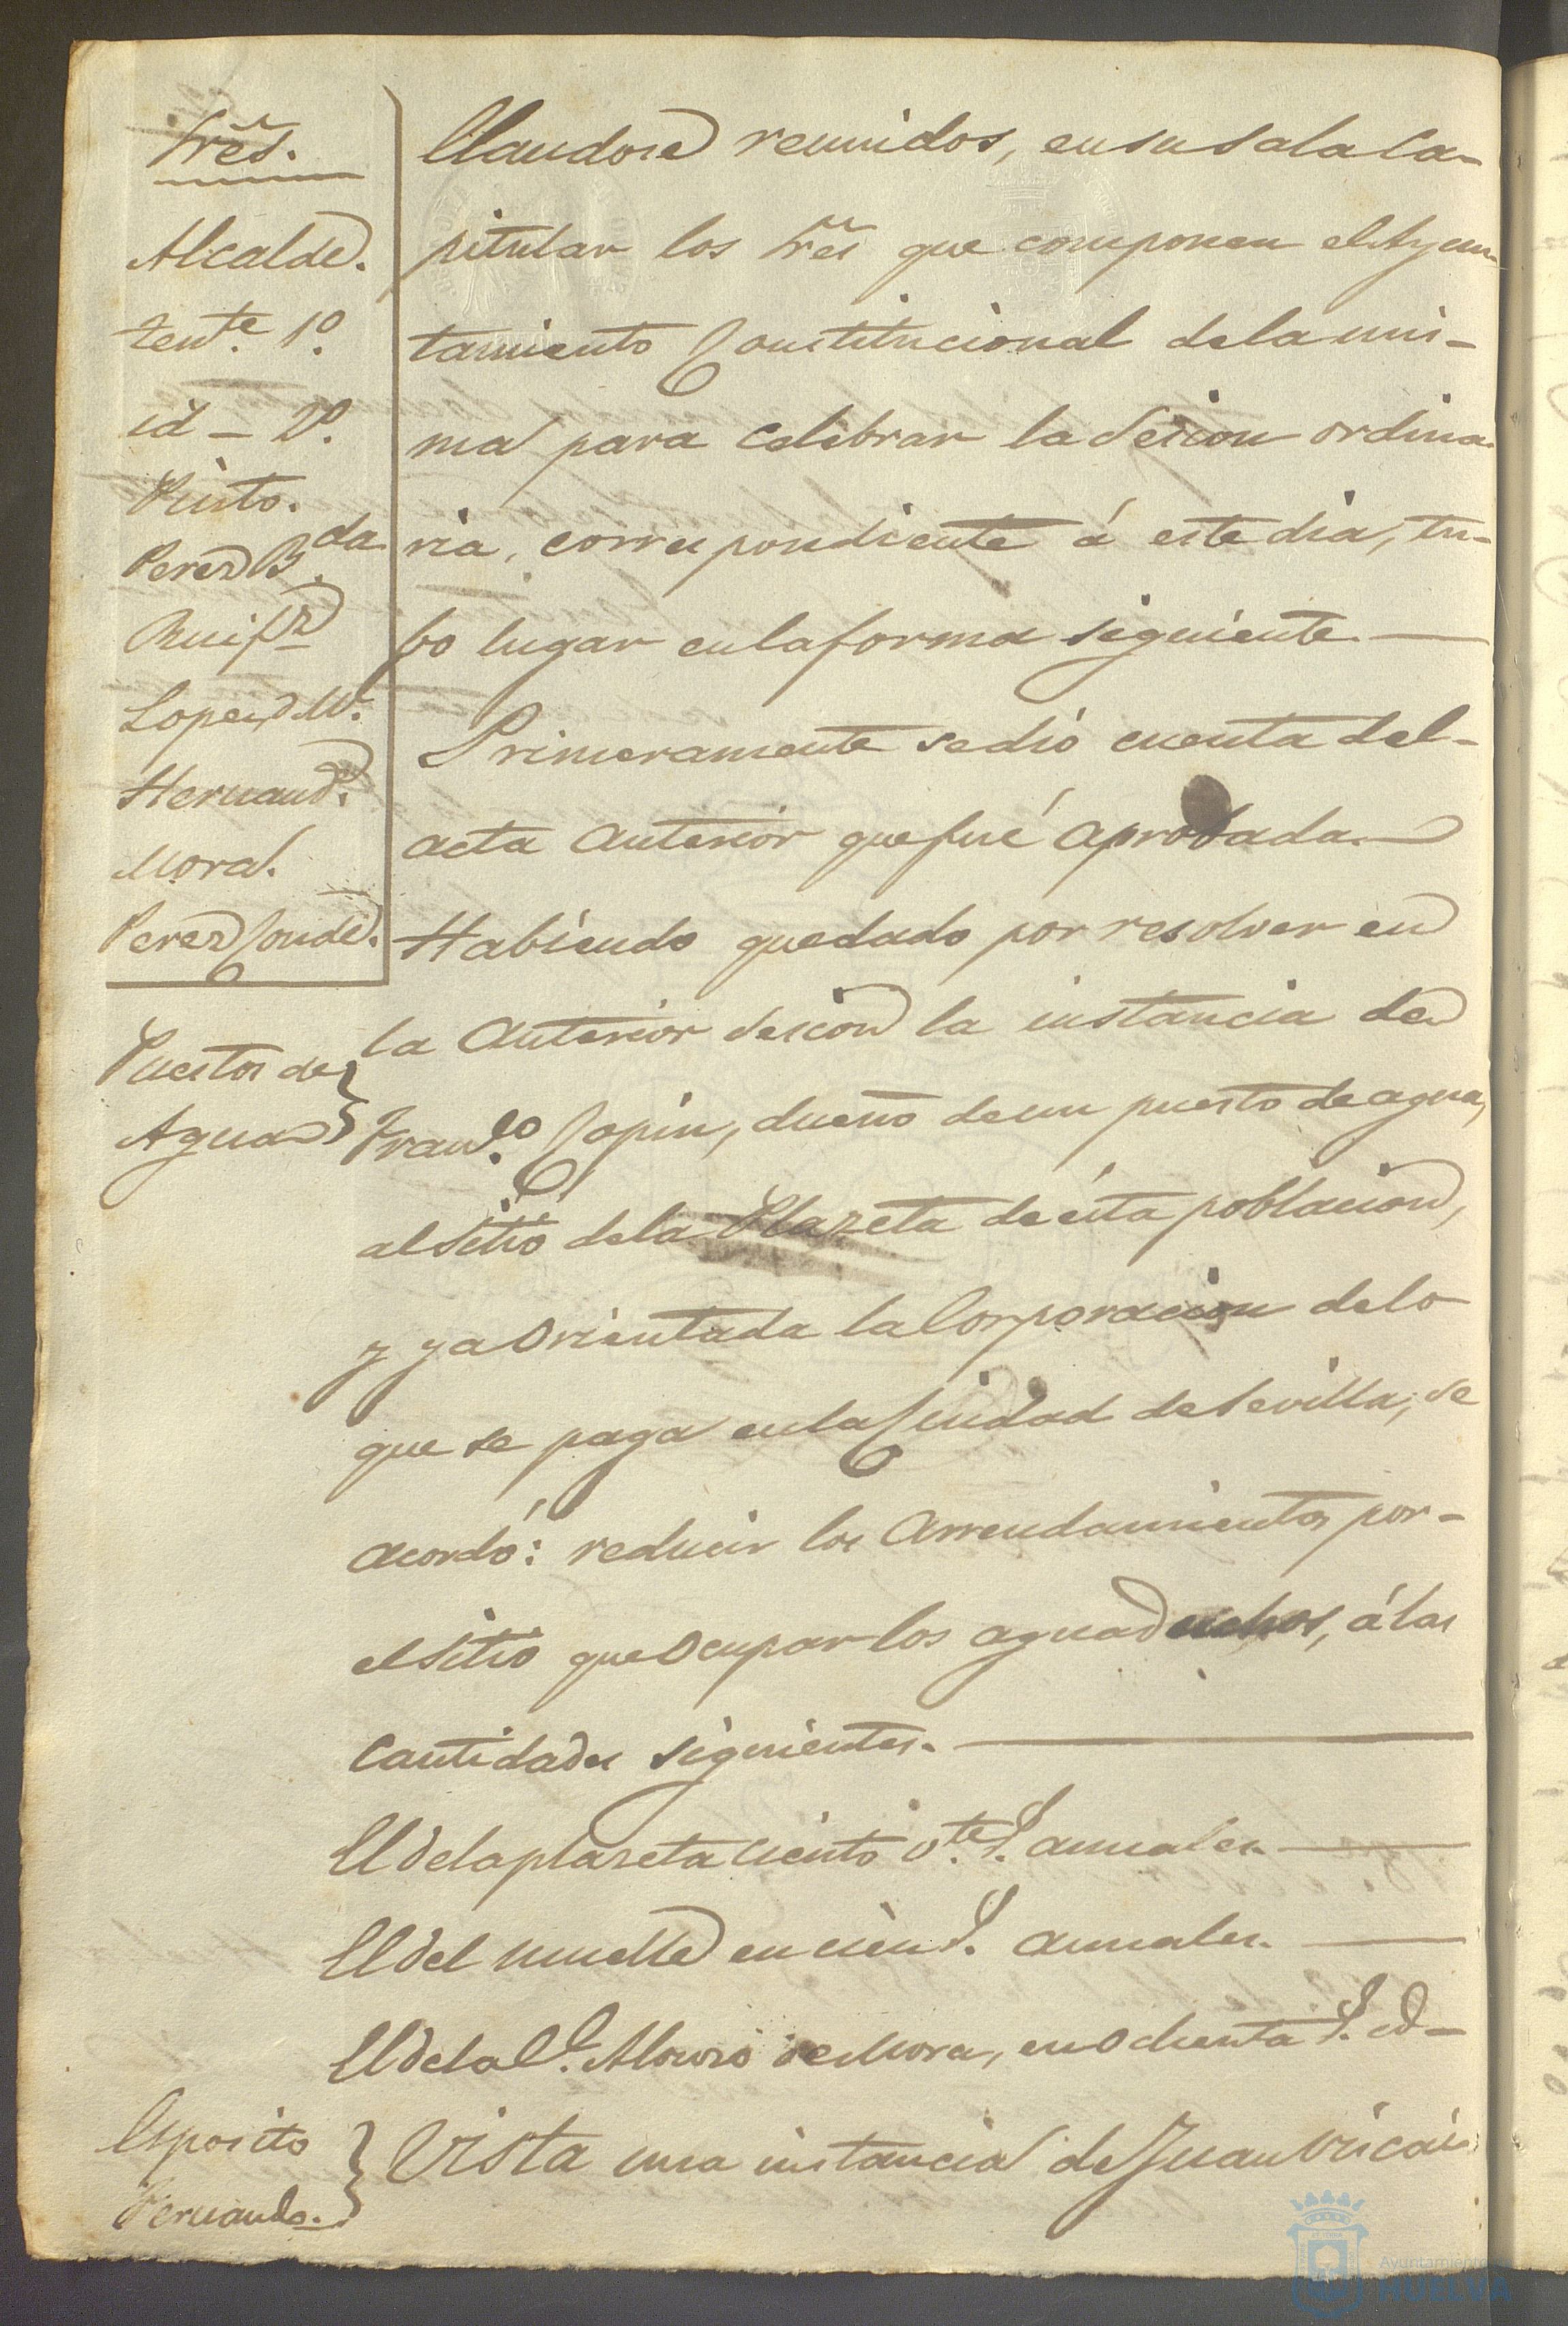 Sres.
Alcalde.
Tente. 1º.
id – 2º.
Pinto.
Perez Bda.
Ruifz
Lopez M.
Hernand.
Mora.
Perez Conde.
llandose reunidos, en su sala Ca-
pitular los Sres que componen el Ayun-
tamiento Constitucional de la mis-
ma para celebrar la Sesion ordina-
ria, correspondiente á este dia, tu-
bo lugar en la forma siguiente.—
Primeramente se dió cuenta del-
acta anterior que fué aprobada.—
Habiendo quedado por resolver en
la anterior Sesion la instancia de
Puestos de
Agua
Franco. Copin, dueño de un puesto de agua,
al sitio de la Plazeta de ésta poblacion,
y ya orientada la Corporacion de lo
que se paga en la Ciudad de Sevilla, se
acordó: reducir los arrendamientos por-
el sitio que ocupar los aguaduchos, á las
cantidades siguientes.—
El de la plazeta ciento vte. annales.—
El del muelle en cien annales.—
El de la Ce. Alonso de Mora, en ochenta id—
Esposito
Fernando.
Vista una instancia de Juan
Ayuntamiento
HUELVA